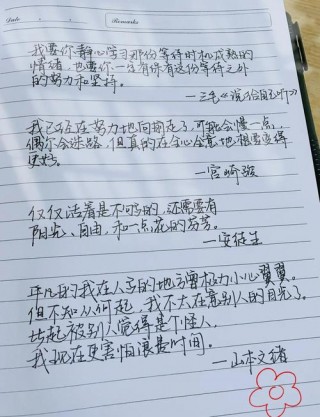 Date
Remarks
我要你静心学习那份等待时机成熟的
情绪,也要你一定有保有这份等待之外
的努力和坚持。
—三毛《说给自己听》
我已经在努力地向前走了,可能会慢一点,
偶尔会迷路,但真的在全心全意地想要变得
更好。
—宫崎骏
仅仅活着是不够的,还需要有
阳光、自由,和一点花的芬芳。
—安徒生
平凡的我在人少的地方曾极力小心翼翼。
但不知从何起,我不大在意别人的目光了。
比起被别人觉得是个怪人,
我现在更害怕浪费时间。
—山本文绪